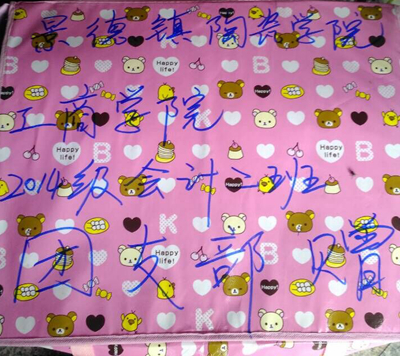 景德镇陶瓷学院
Happy life! B
工商学院
Happy life! Happy life! B
2014级会计二班
K
Happy life! B
团支部 赠
Happy life!